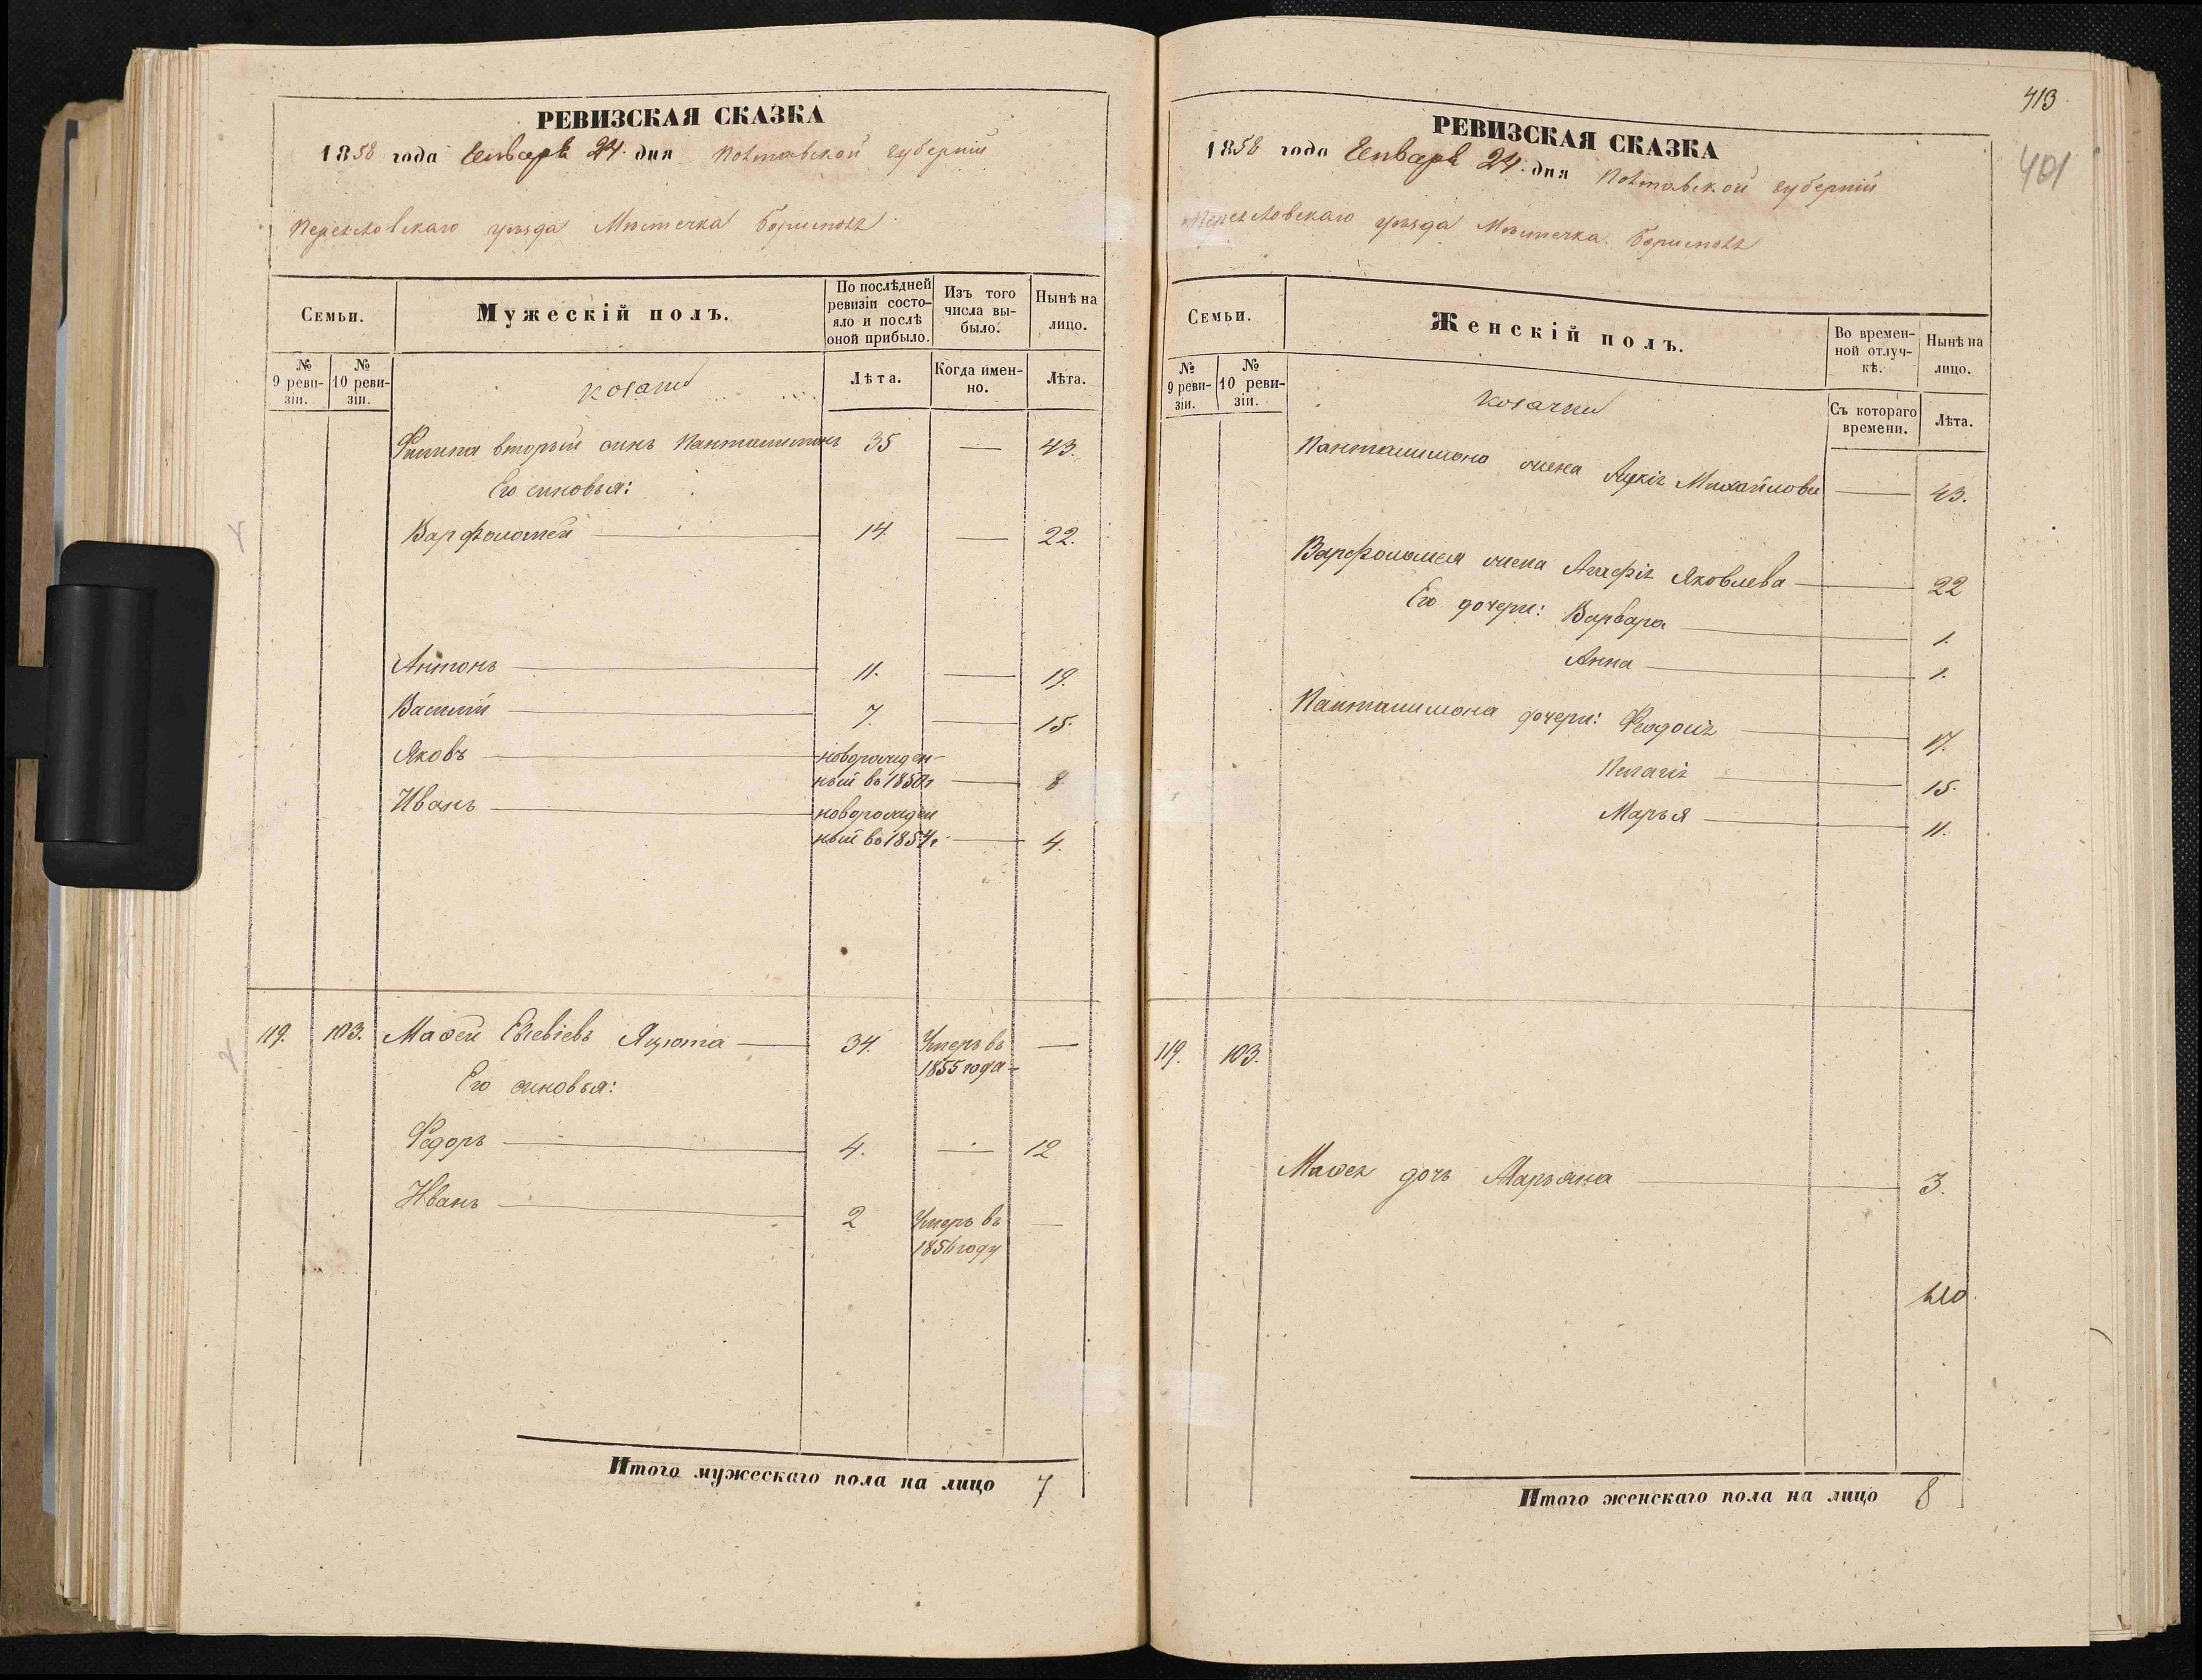 РЕВИЗСКАЯ СКАЗКА
1858 года Генваря 24. дня Полтавской губерніи
Переяловскаго уѣзда Мѣстечка Борисполя
Семьи.
Мужескій полъ.
По послѣдней ревизіи состояло и послѣ оной прибыло.
Изъ того числа выбыло.
Нынѣ на лицо.
№ 9 ревизіи.
№ 10 ревизіи.
козаки
Лѣта.
Когда именно.
Лѣта.
Филипа вторый сынъ Панталимонъ 35 — 43.
Его сыновья:
Варфоломей — 14. — 22.
Антонъ — 11. — 19.
Василій — 7. — 15.
Яковъ — новорожден-
ный въ 1850г — 8
Иванъ — новорожден
ный въ 1854г. — 4.
119. 103. Мафей Евсевіевъ Яцюта — 34. Умеръ въ —
1855 года
Его сыновья:
Федоръ — 4. — 12
Иванъ — 2 Умеръ въ —
1851 году
Итого мужескаго пола на лицо 7
413
401
РЕВИЗСКАЯ СКАЗКА
1858 года Генваря 24. дня Полтавской губерніи
Переяловскаго уѣзда Мѣстечка Борисполя
Семьи.
Женскій полъ.
Во временной отлучкѣ.
Нынѣ на лицо.
№ 9 ревизіи.
№ 10 ревизіи.
козачки
Съ котораго времени.
Лѣта.
Панталимона жена Михайлова — 43.
Варфоломея жена Агафія Яковлева — 22
Его дочери: Варвара — 1.
Анна — 1.
Панталимона дочери: Феодосія — 17.
Пелагія — 15.
Марья — 11.
119. 103.
Мафея дочь Марьяна — 3.
Итого женскаго пола на лицо 8